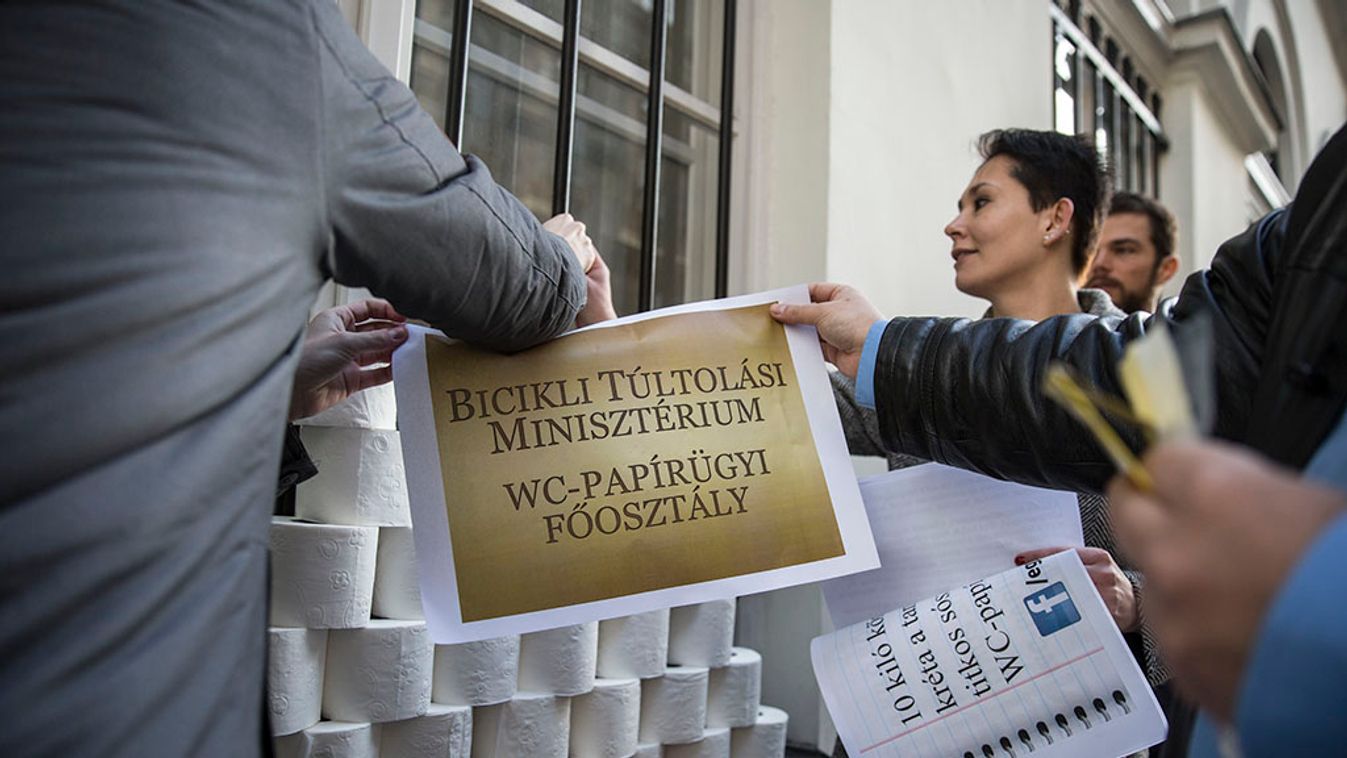 BICIKLI TÚLTOLÁSI
MINISZTÉRIUM
WC-PAPÍRÜGYI
FŐOSZTÁLY
f
10 kiló
kréta a
titkos